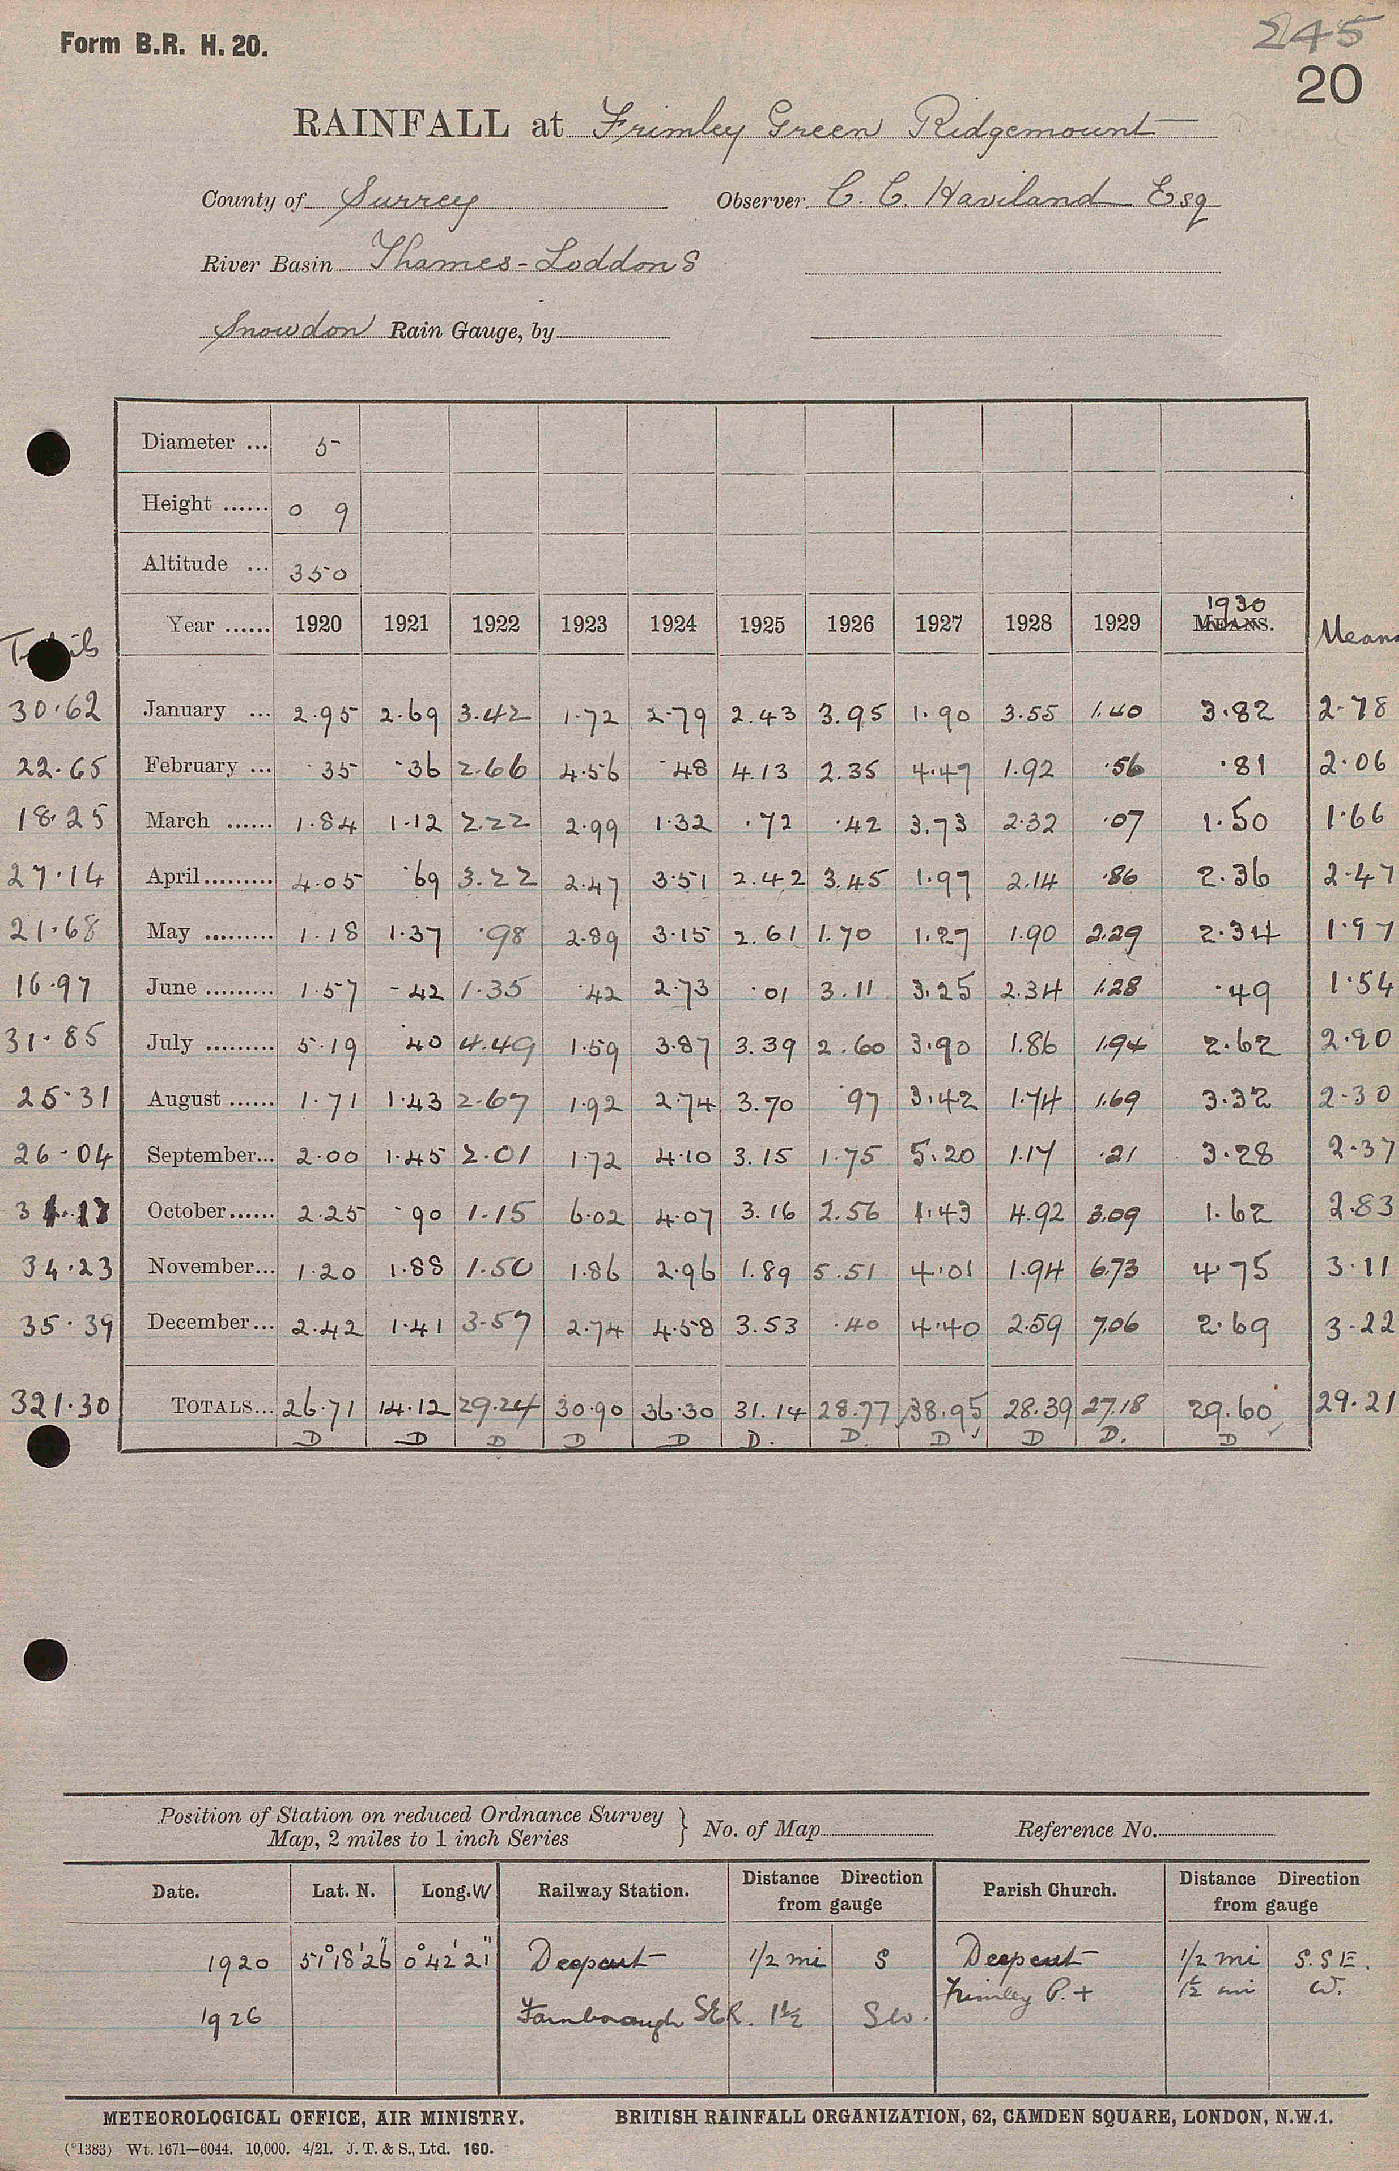 Form B.R. H. 20.
245
20
RAINFALL at Frimley Green Ridgemount
County of Surrey Observer C. C. Haviland Esq
River Basin Thames - Loddon S
Snowdon Rain Gauge, by
Diameter ... 5
Height ...... 0 9
Altitude ... 350
Totals Year ...... 1920 1921 1922 1923 1924 1925 1926 1927 1928 1929 1930 MEANS. Means
30.62 January ... 2.95 2.69 3.42 1.72 2.79 2.43 3.95 1.90 3.55 1.40 3.82 2.78
22.65 February ... .35 .36 2.66 4.56 .48 4.13 2.35 4.47 1.92 .56 .81 2.06
18.25 March ...... 1.84 1.12 2.22 2.99 1.32 .72 .42 3.73 2.32 .07 1.50 1.66
27.14 April ......... 4.05 .69 3.22 2.47 3.51 2.42 3.45 1.97 2.14 .86 2.36 2.47
21.68 May ......... 1.18 1.37 .98 2.89 3.15 2.61 1.70 1.27 1.90 2.29 2.34 1.97
16.97 June ......... 1.57 .42 1.35 .42 2.73 .01 3.11 3.25 2.34 1.28 .49 1.54
31.85 July ......... 5.19 .40 4.49 1.59 3.87 3.39 2.60 3.90 1.86 1.94 2.62 2.90
25.31 August ...... 1.71 1.43 2.67 1.92 2.74 3.70 .97 3.42 1.74 1.69 3.32 2.30
26.04 September... 2.00 1.45 2.01 1.72 4.10 3.15 1.75 5.20 1.17 .21 3.28 2.37
October...... 2.25 .90 1.15 6.02 4.07 3.16 2.56 1.43 4.92 3.09 1.62 2.83
34.23 November... 1.20 1.88 1.50 1.86 2.96 1.89 5.51 4.01 1.94 6.73 4.75 3.11
35.39 December... 2.42 1.41 3.57 2.74 4.58 3.53 .40 4.40 2.59 7.06 2.69 3.22
321.30 TOTALS... 26.71 14.12 29.24 30.90 36.30 31.14 28.77 38.95 28.39 27.18 29.60 29.21
D D D D D D. D. D D D. D
Position of Station on reduced Ordnance Survey Map, 2 miles to 1 inch Series } No. of Map Reference No.
Date. Lat. N. Long. W Railway Station. Distance Direction from gauge Parish Church. Distance Direction from gauge
1920 51°18'26" 0°42'21" Deepcut 1/2 mi S Deepcut 1/2 mi S.S.E.
Frimley P. + 1½ mi W.
1926 Farnborough SER. 1½ SW.
METEOROLOGICAL OFFICE, AIR MINISTRY. BRITISH RAINFALL ORGANIZATION, 62, CAMDEN SQUARE, LONDON, N.W.1.
(*1383) Wt. 1671—6044. 10,000. 4/21. J. T. & S., Ltd. 160.